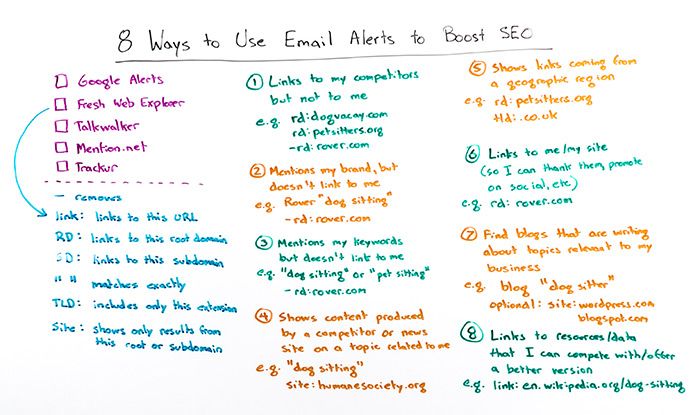 8 Ways to Use Email Alerts to Boost SEO
Google Alerts
Fresh Web Explorer
Talkwalker
Mention.net
Trackur
— removes
link: links to this URL
RD: links to this root domain
SD: links to this subdomain
" " matches exactly
TLD: includes only this extension
Site: shows only results from
this root or subdomain
① Links to my competitors
but not to me
e.g. rd:dogvacay.com
rd:petsitters.org
-rd:rover.com
② Mentions my brand, but
doesn't link to me
e.g. Rover "dog sitting"
-rd:rover.com
③ Mentions my keywords
but doesn't link to me
e.g. "dog sitting" or "pet sitting"
-rd:rover.com
④ Shows content produced
by a competitor or news
site on a topic related to me
e.g. "dog sitting"
site:humanesociety.org
⑤ Shows links coming from
a geographic region
e.g. rd:petsitters.org
tld:.co.uk
⑥ Links to me/my site
(so I can thank them, promote
on social, etc)
e.g. rd:rover.com
⑦ Find blogs that are writing
about topics relevant to my
business
e.g. blog "dog sitter"
optional: site:wordpress.com
blogspot.com
⑧ Links to resources/data
that I can compete with/offer
a better version
e.g. link:en.wikipedia.org/dog-sitting